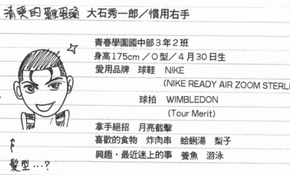 清爽的雞蛋頭
大石秀一郎／慣用右手
青春學園國中部3年2班
身高175cm／O型／4月30日生
愛用品牌 球鞋 NIKE
(NIKE READY AIR ZOOM STERL
球拍 WIMBLEDON
(Tour Merit)
拿手絕招 月亮截擊
喜歡的食物 炸肉串 蛤蜊湯 梨子
興趣・最近迷上的事 養魚 游泳
髮型…?